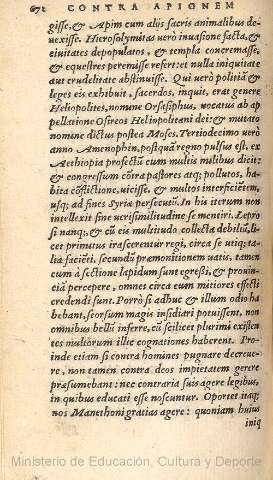 672 CONTRA APIONEM
gisse, & Apim cum alijs sacris animalibus de-
uexisse. Hierosolymitas uerò inuasione facta, &
ciuitates depopulatos, & templa concremasse,
& equestres peremisse refert: et nulla iniquitate
aut crudelitate abstinuisse. Qui uerò politiã &
leges eis exhibuit, sacerdos, inquit, erat genere
Heliopolites, nomine Orsasiphus, uocatus ab ap
pellatione Osireos Heliopolitani dei: & mutato
nomine dictus postea Moses. Tertiodecimo uerò
anno Amenophin, postquã regno pulsus est, ex
Aethiopia profectũ cum multis milibus dicit:
& congressum cõtra pastores atq; pollutos, ha
bita cõflictione, uicisse, & multos interficiẽtem,
usq; ad fines Syriæ persecutũ. In his iterum non
intellexit sine uerisimilitudine se mentiri. Lepro
si nanq;, & cũ eis multitudo collecta debiliũ, li-
cet primutus irascerentur regi, circa se utiq; ta-
lia faciẽti, secundũ præmonitionem uatis, tamen
cum à sectione lapidum sunt egressi, & prouin-
ciã percepere, omnes circa eum mitiores effecti
credendi sunt. Porrò si adhuc & illum odio ha
bebant, seorsum magis insidiari potuissent, non
omnibus bellũ inferre, cũ scilicet plurimi existen
tes multorũm illic cognationes haberent. Pro-
inde etiam si contra homines pugnare decreue-
re, non tamen contra deos impietatem gerere
præsumebant: nec contraria suis agere legibus,
in quibus educati esse noscuntur. Oportet naq;
nos Manethoni gratias agere: quoniam huius
iniq
Ministerio de Educación, Cultura y Deporte